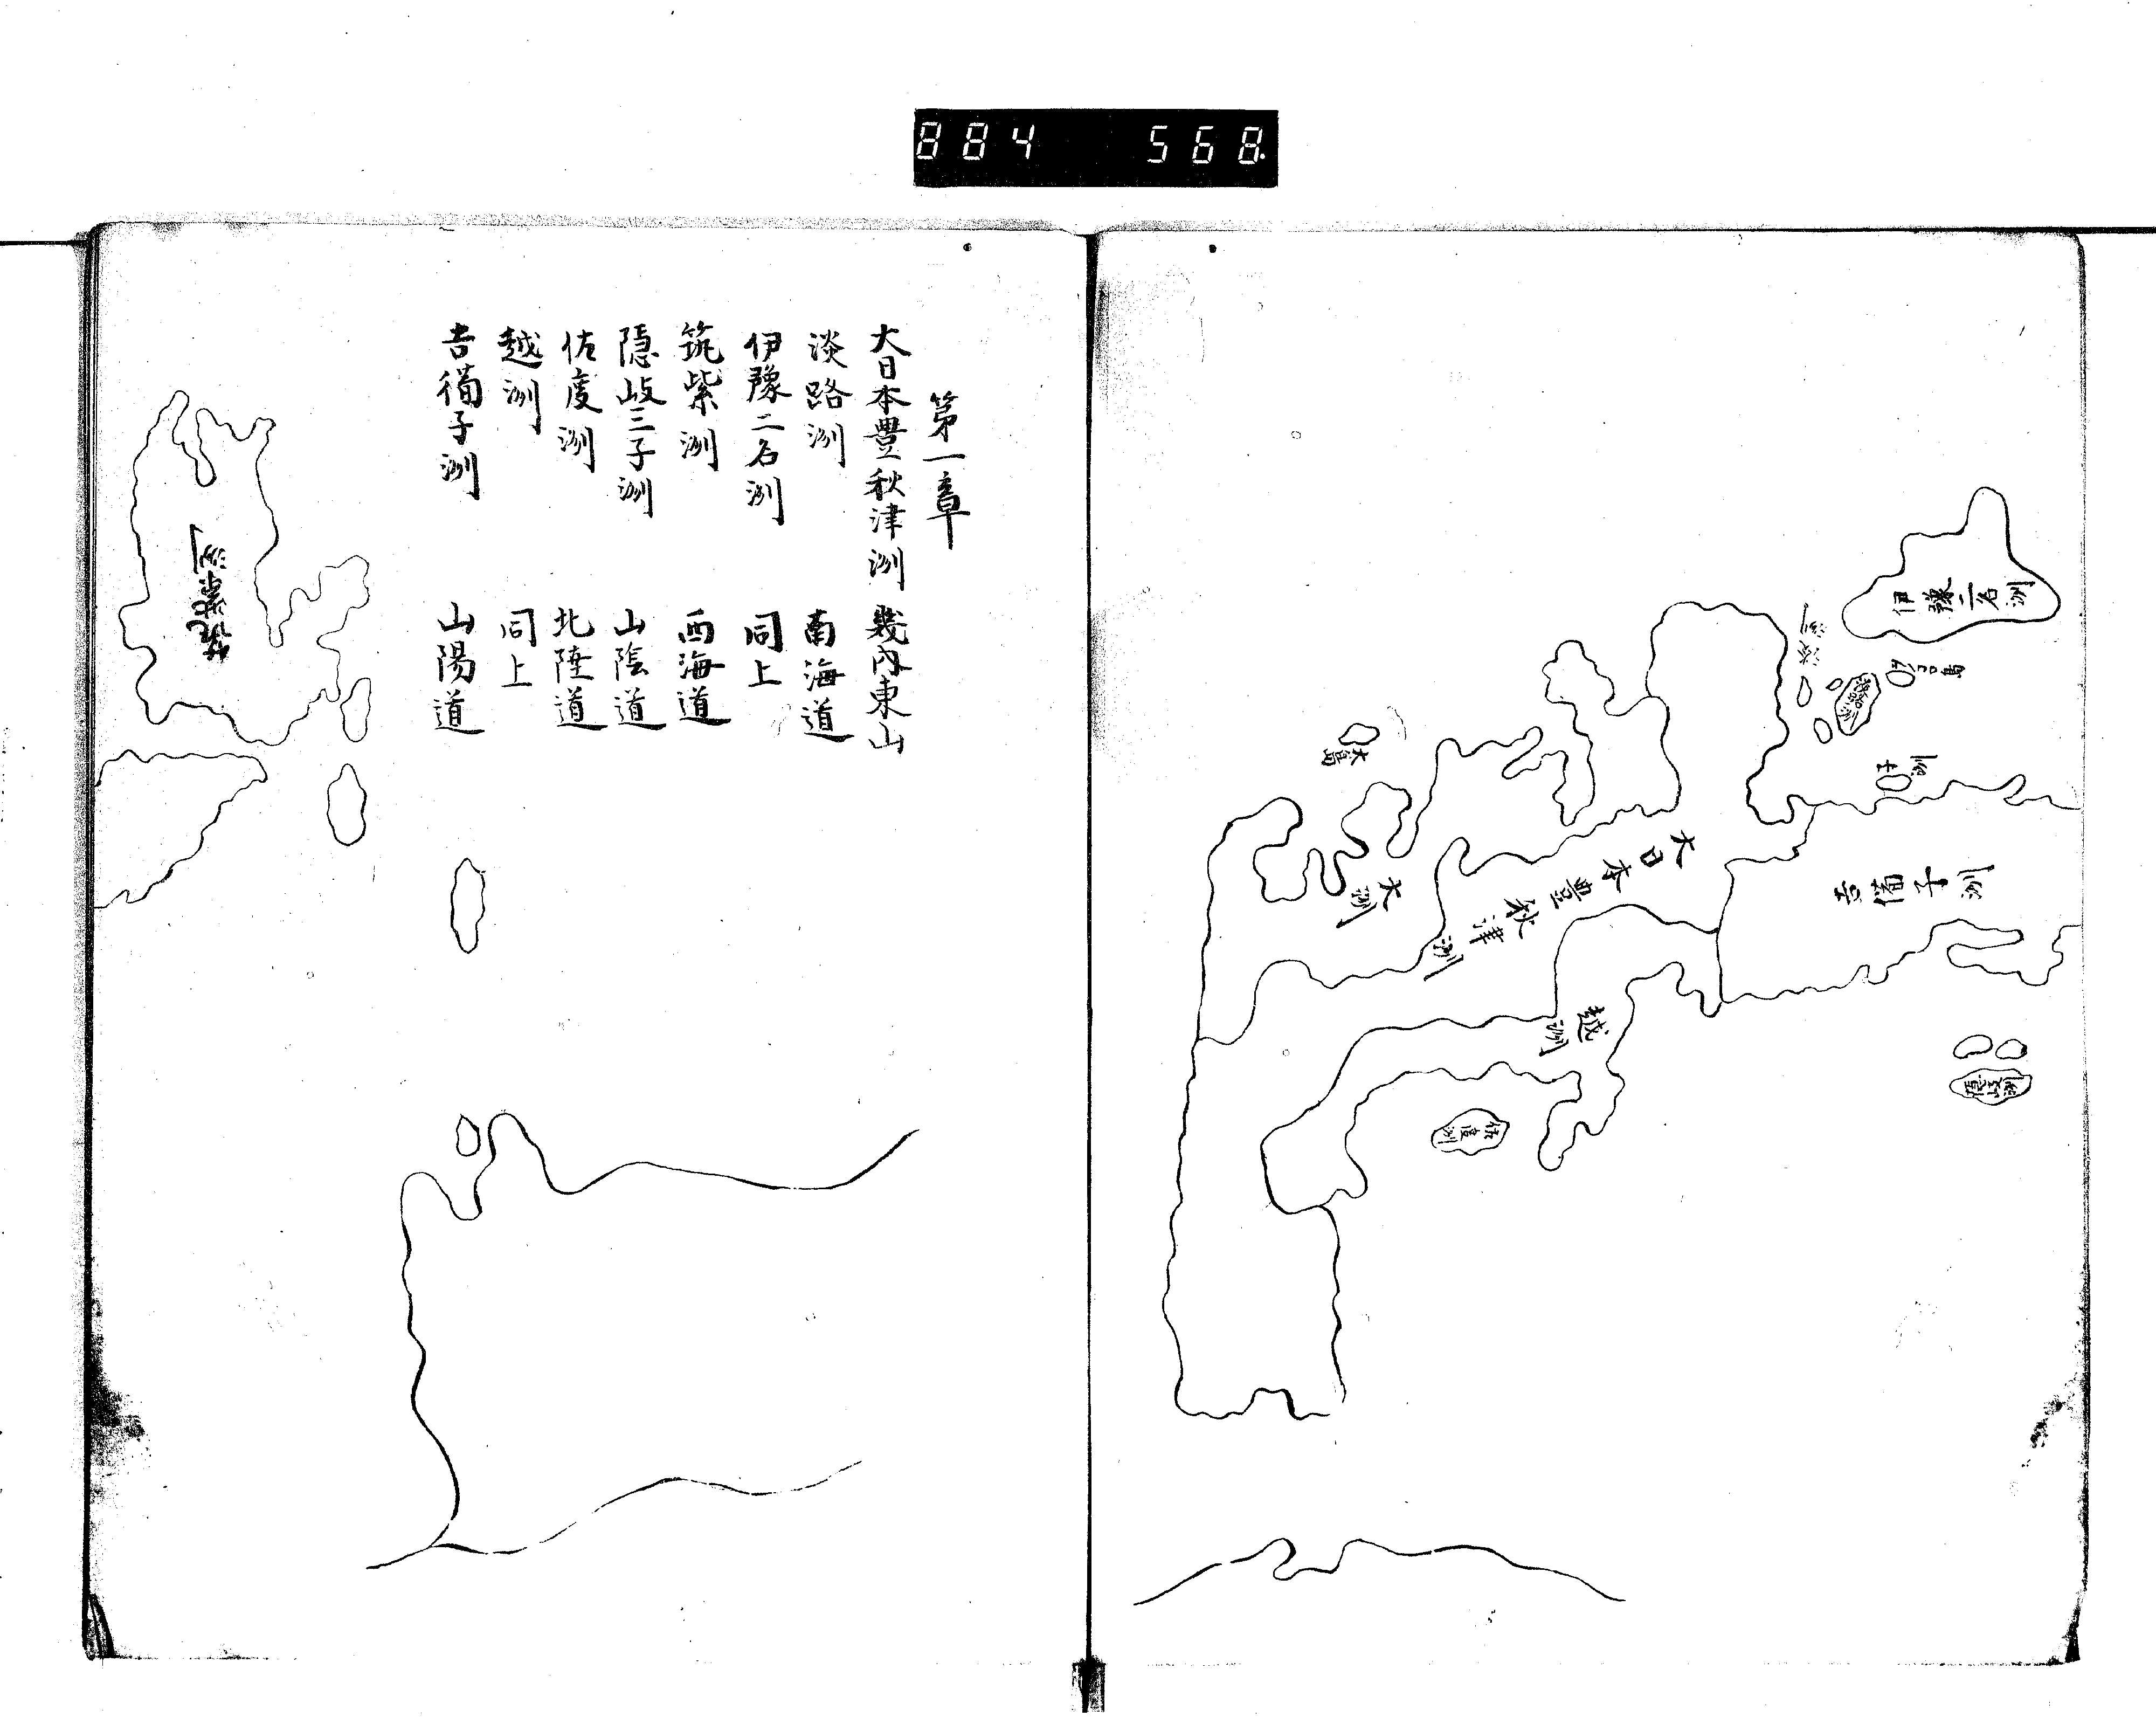 884 568
伊豫二名洲
淡路洲
子洲
吉備子洲
大島
大日本豊秋津洲
大洲
越洲
佐度洲
隠岐洲
第一章
大日本豊秋津洲 幾内東山
淡路洲 南海道
伊豫二名洲 同上
筑紫洲 西海道
隠岐三子洲 山陰道
佐度洲 北陸道
越洲 同上
吉備子洲 山陽道
筑紫洲